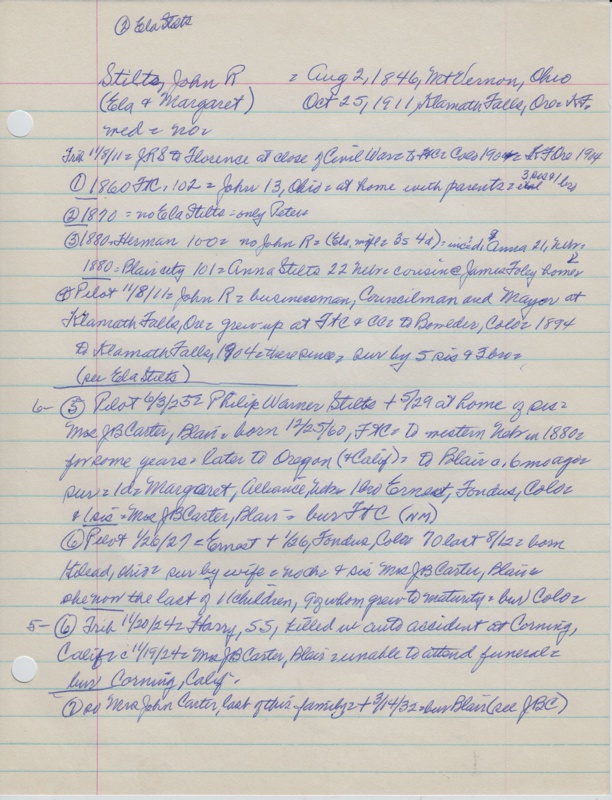 ② Ela Stilts
Stilts, John R = Aug 2, 1846, Mt Vernon, Ohio
(Ela & Margaret) Oct 25, 1911, Klamath Falls, Ore = KF.
med = no =
Trib 11/8/11 = JRS to Florence at close of Civil War = to Colo = K F Ore 1904
① 1860 FtC = 102 = John 13, Ohio = at home with parents = 3 sis & 1 bro
② 1870 = no Ela Stilts = only Peter
③ 1880 = Herman 100 = no John R = (Ela, wife = 3s 4d) = incid. Anna 21, Nebr =
1880 = Blair city 101 = Anna Stilts 22 Nebr = cousin @ James Foley home =
④ Pilot 11/8/11 = John R = businessman, Councilman and Mayor at
Klamath Falls, Ore = grew up at FtC & CC = to Colo = 1894
to Klamath Falls, 1904 = there since = sur by 5 sis & 3 bro =
(see Ela Stilts)
6- ⑤ Pilot 6/3/25 = Philip Warner Stilts + 5/29 at home of sis =
Mrs J B Carter, Blair = born 12/25/60, FtC = to western Nebr in 1880 =
for some years = later to Oregon (& Calif) = to Blair a. 6 mo ago =
sur = 1d = Margaret, Alliance, Nebr = 1 bro Ernest, Fondus, Colo =
& 1 sis = Mrs J B Carter, Blair = bur FtC (NM)
⑥ Pilot 1/26/27 = Ernest + 1/26, Fondus, Colo = 70 last 8/12 = born
Ohio = sur by wife = no ch = & sis Mrs J B Carter, Blair =
she now the last of 11 children, 9 of whom grew to maturity = bur Colo =
5- ⑥ Trib 11/20/24 = Harry, 55, killed in auto accident at Corning,
Calif = c 11/19/24 = Mrs J B Carter, Blair = unable to attend funeral =
bur Corning, Calif.
⑦ Mrs John Carter, last of this family = + 3/14/32 = bur Blair (see JBC)